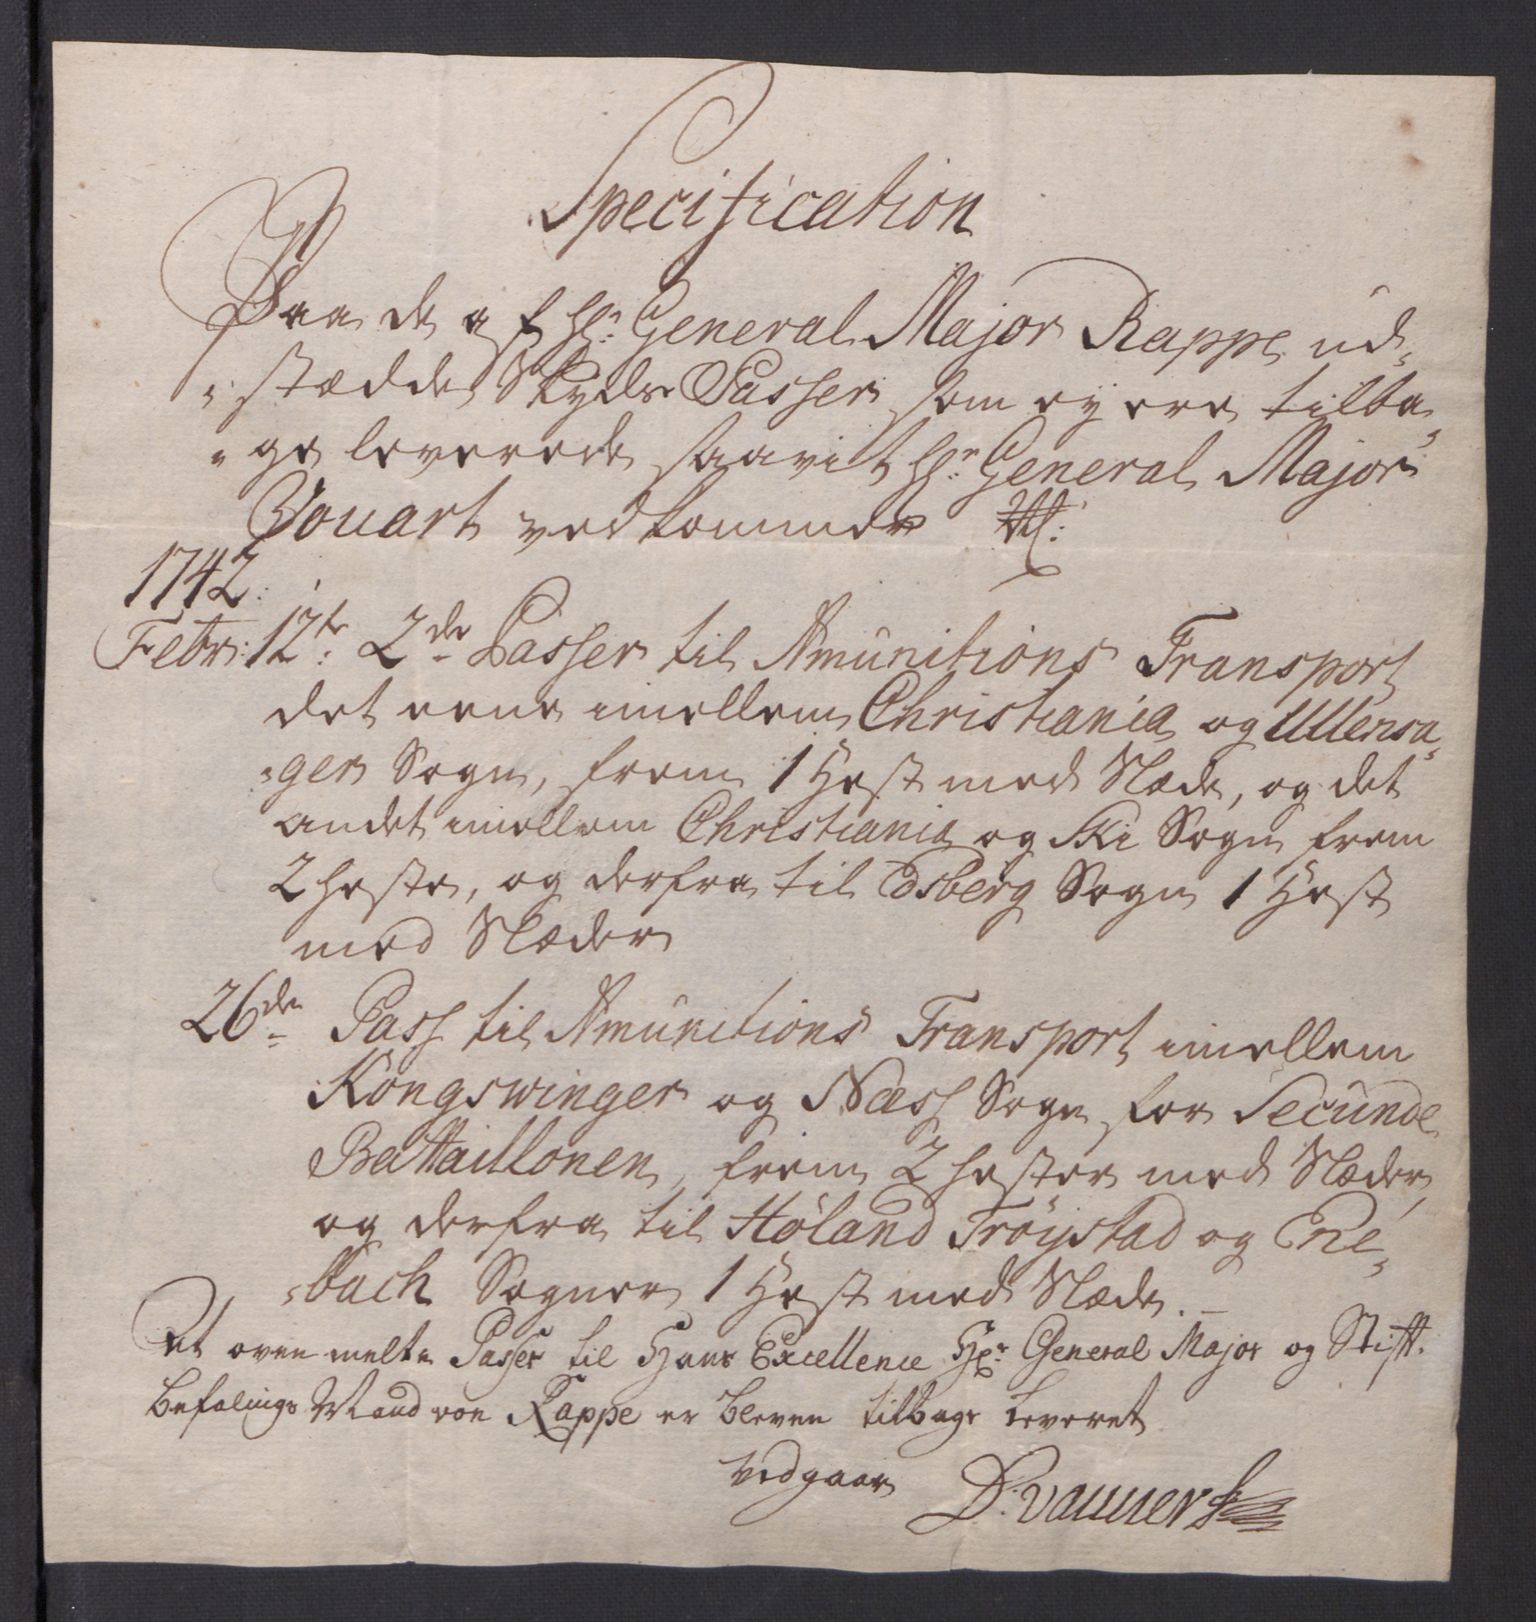 Specification
Paa de af Hr: General Major Rappe ud,
„stædde Skyds Passer som ey ere tilba„
„ge leverede saavit Hr: General Major
Vouart vedkommer
1742:
Febr: 12te: 2de Passer til Amunitions Transport
det eene imellem Christiania og Ullensa„
„ger Sogn, frem 1 Hest med Slæde, og det
andet imellem Christiania og Ski Sogn frem
2 heste, og derfra til Edsberg Sogn 1 Hest
med Slæder
26de Pass til Amunitions Transport imellem
Kongswinger og Næss Sogn for Secunde
Battaillonen, frem 2 hester med Slæder
og derfra til Høland Trøystad og Ene„
„bach Sogner 1 Hest med Slæde. –
At oven melte Passer til Hans Excellence Hr: General Major og Stifft.
befalings Mand von Rappe er bleven tilbage leveret
Vedgaar